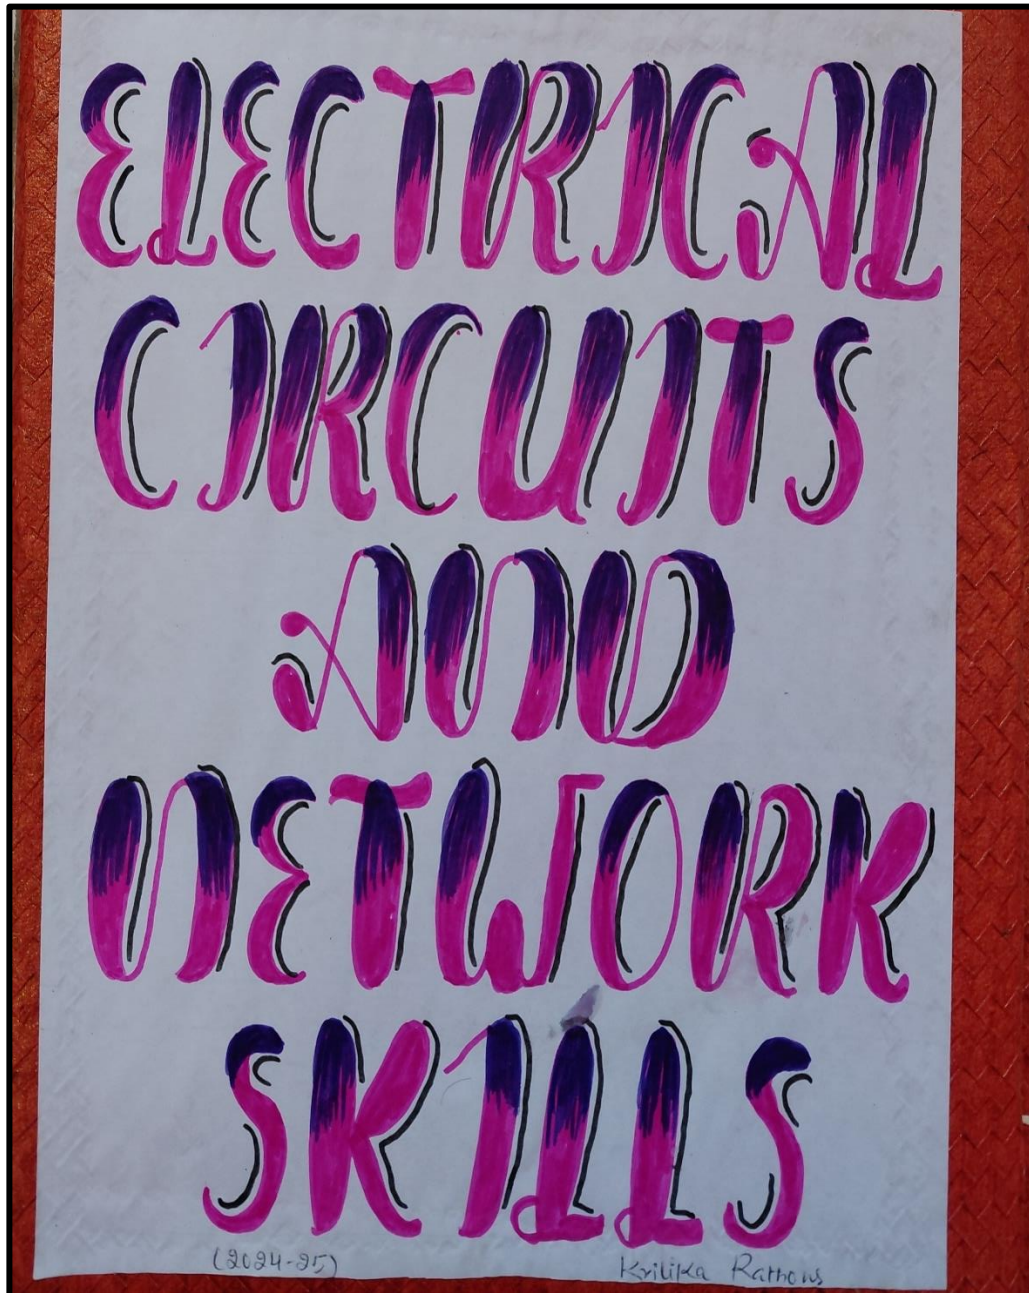 ELECTRICAL
CIRCUITS
AND
NETWORK
SKILLS
(2024-25) Kritika